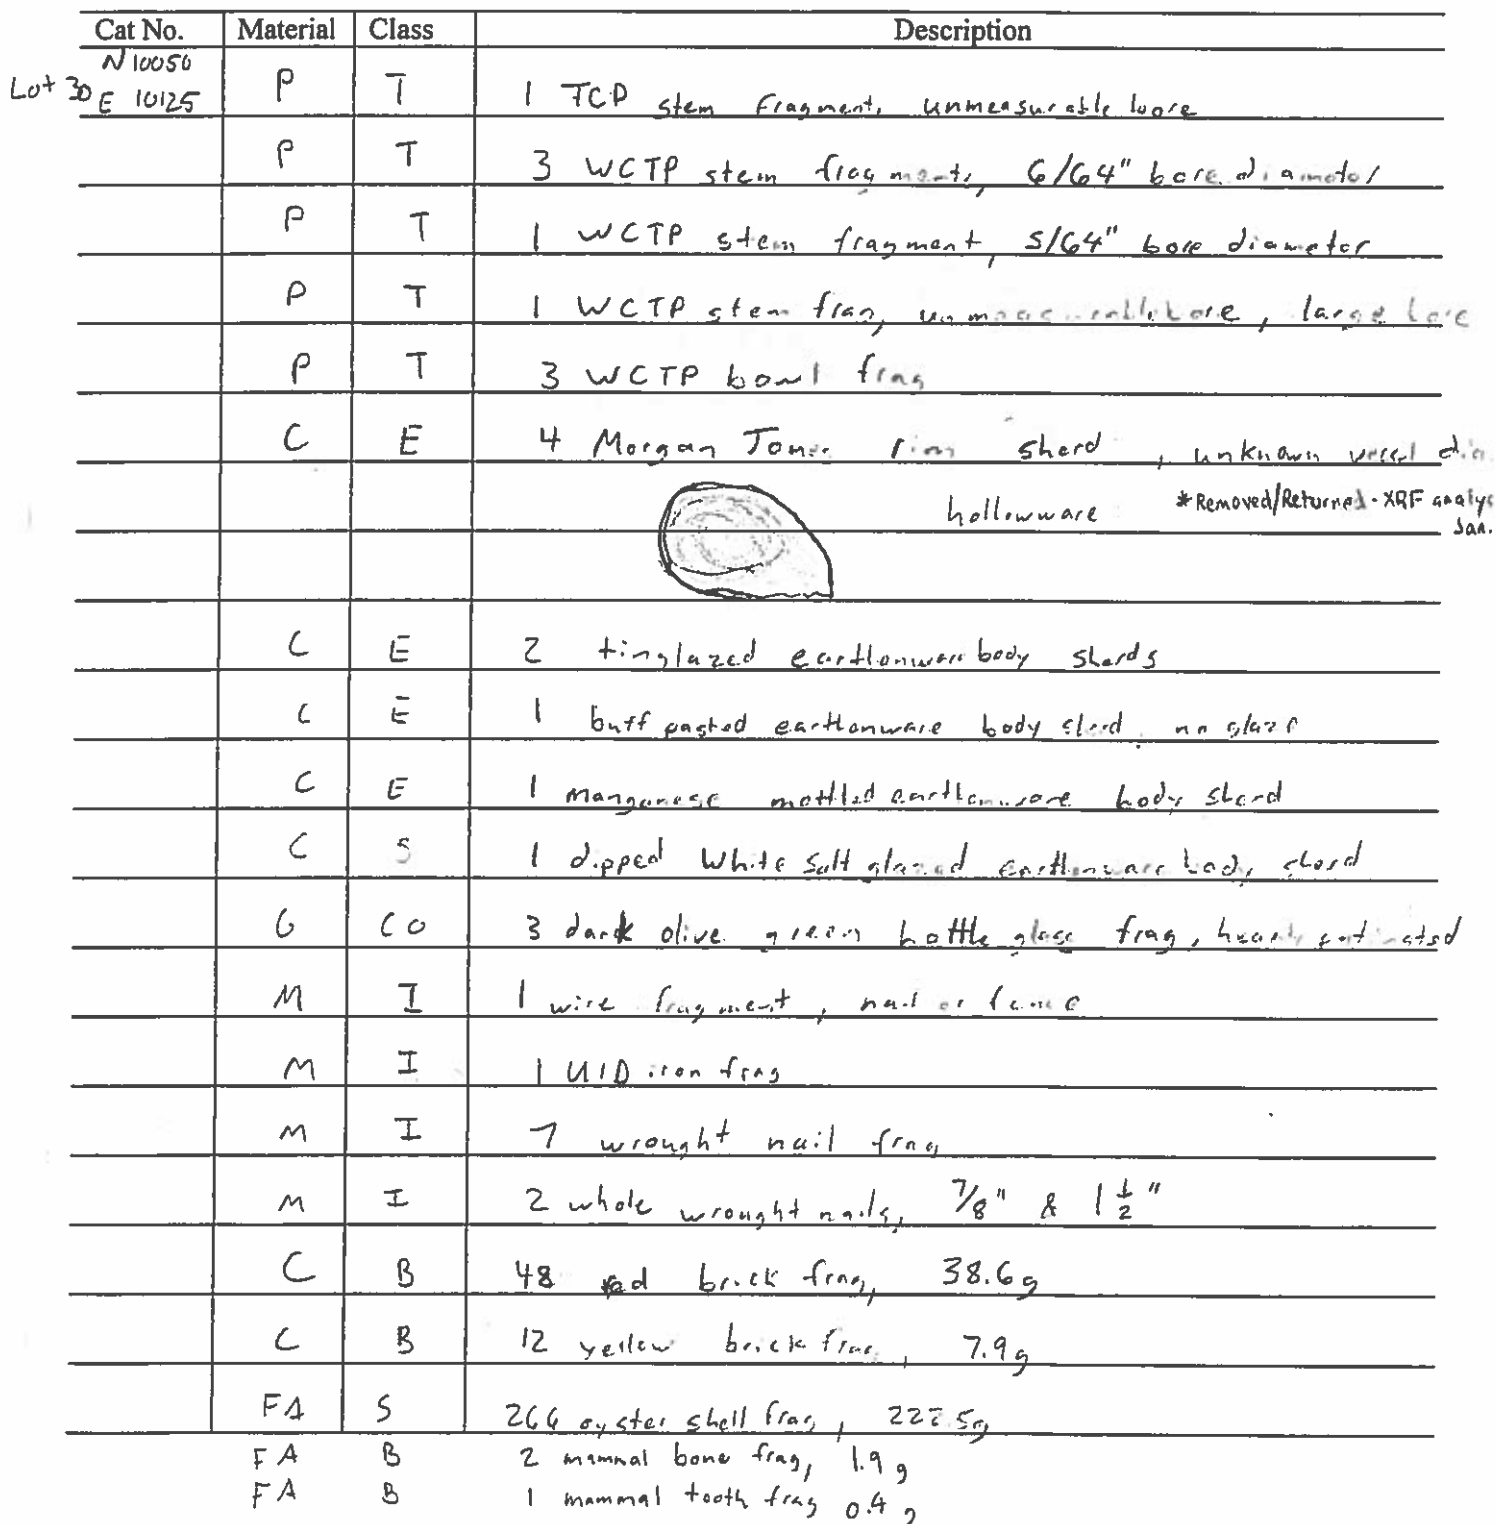 Cat No. Material Class Description
Lot 30 N 10050 E 10125 P T 1 TCP stem fragment, unmeasurable bore
P T 3 WCTP stem fragments, 6/64" bore diameter
P T 1 WCTP stem fragment, 5/64" bore diameter
P T 1 WCTP stem frag, unmeasurable bore, large bore
P T 3 WCTP bowl frag
C E 4 Morgan Jones rim sherd, unknown vessel dia.
hollowware *Removed/Returned - XRF analys
Jan.
C E 2 tinglazed earthenware body sherds
C E 1 buff pasted earthenware body sherd, no glaze
C E 1 manganese mottled earthenware body sherd
C S 1 dipped white salt glazed earthenware body sherd
G CO 3 dark olive green bottle glass frag, heavily patinated
M I 1 wire fragment, nail or fence
M I 1 UID iron frag
M I 7 wrought nail frag
M I 2 whole wrought nails, 7/8" & 1 1/2"
C B 48 red brick frag, 38.6g
C B 12 yellow brick frag, 7.9g
FA S 266 oyster shell frag,
FA B 2 mammal bone frag, 1.9 g
FA B 1 mammal tooth frag 0.4 g